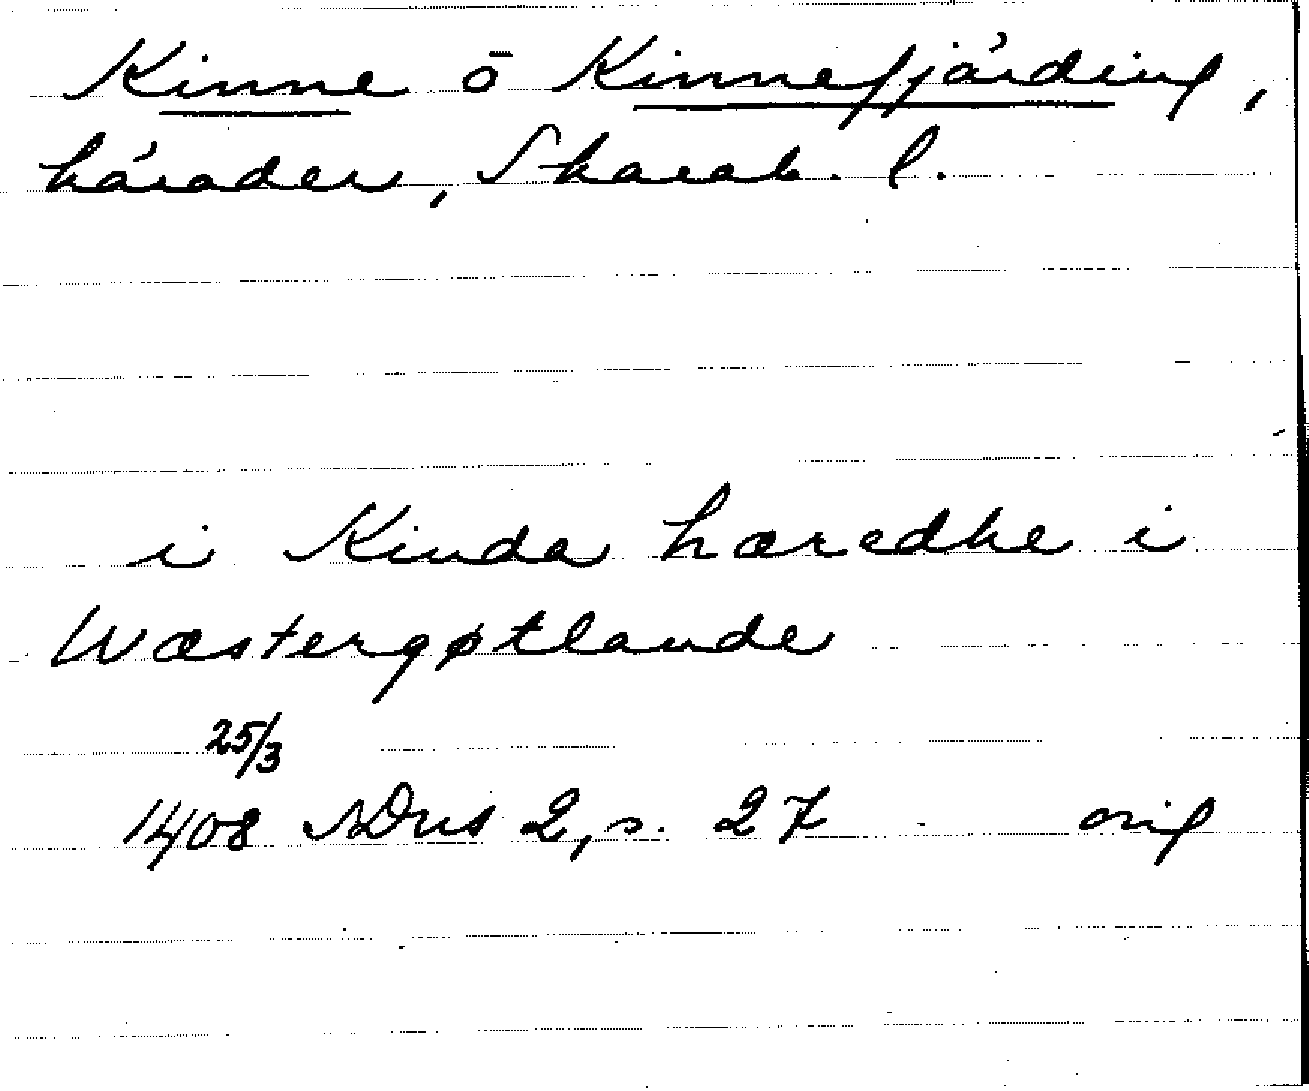 Kinne o Kinnefjärding,
härader, Skarab. l.
i Kinda hæredhe i
Wæstergøtlande
25/3
1408 SDns 2, s. 27 orig